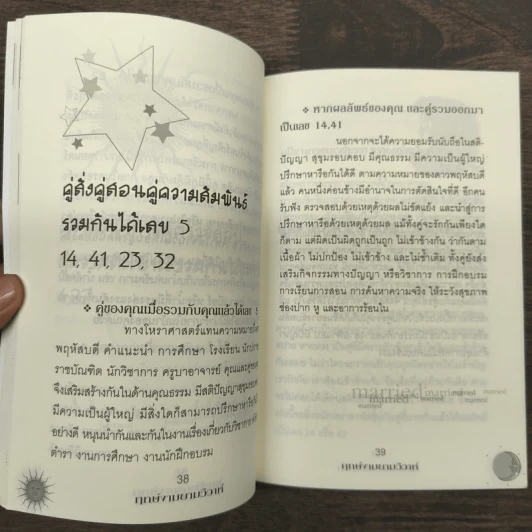 คู่สั่งคู่สอนคู่ความสัมพันธ์
รวมกันได้เลข 5
14, 41, 23, 32
❖ คู่ของคุณเมื่อรวมกับคุณแล้วได้เลข 5
ทางโหราศาสตร์แทนความหมาย
พฤหัสบดี คำแนะนำ การศึกษา โรงเรียน
ราชบัณฑิต นักวิชาการ ครูบาอาจารย์ คุณและคู่
จึงเสริมสร้างกันในด้านคุณธรรม มีสติปัญญา
มีความเป็นผู้ใหญ่ มีสิ่งใดก็สามารถปรึกษาหารือกันได้
อย่างดี หนุนนำกันและกันในงานเรื่องเกี่ยวกับวิชาการ
ตำรา งานการศึกษา งานนักฝึกอบรม
38
ฤกษ์งามยามวิวาห์
❖ หากผลลัพธ์ของคุณ และคู่รวมออกมา
เป็นเลข 14,41
นอกจากจะได้ความยอมรับนับถือในสติ-
ปัญญา สุขุมรอบคอบ มีคุณธรรม มีความเป็นผู้ใหญ่
ปรึกษาหารือกันได้ดี ตามความหมายของดาวพฤหัสบดี
แล้ว คนหนึ่งค่อนข้างมีอำนาจในการตัดสินใจที่ดี อีกคน
รับฟัง ตรวจสอบด้วยเหตุด้วยผลไม่ขัดแย้ง และนำสู่การ
ปรึกษาหารือกันด้วยเหตุด้วยผล แม้ทั้งคู่จะรักกันเพียงใด
ก็ตาม แต่ผิดเป็นผิดถูกเป็นถูก ไม่เข้าข้างกัน ว่ากันตาม
เนื้อผ้า ไม่ปกป้อง ไม่เข้าข้าง และไม่ซ้ำเติม ทั้งคู่ยังส่ง
เสริมกิจกรรมทางปัญญา หรือวิชาการ การฝึกอบรม
การเรียนการสอน การค้นหาความจริง ให้ระวังสุขภาพ
ช่องปาก หู และอาการร้อนใน
married married married
married married married
39
ฤกษ์งามยามวิวาห์